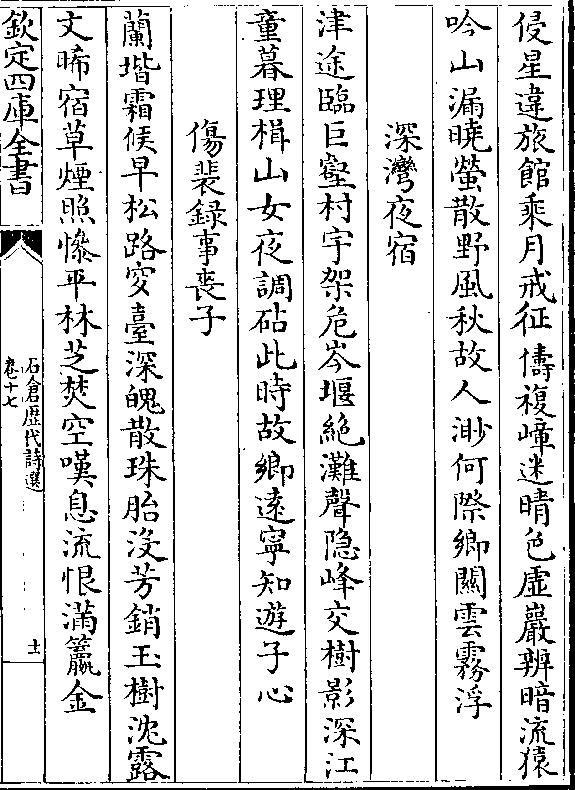 侵星違旅館乗月戒征儔複嶂迷晴色虚巖辨暗流猿
吟山漏曉螢散野風秋故人渺何際鄉關雲霧浮
深灣夜宿
津途臨巨壑村宇架危岑堰絶灘聲隐峰交樹影深江
童暮理楫山女夜調砧此時故鄉遠寧知遊子心
傷裴録事喪子
蘭堦霜候早松路穸臺深魄散珠胎沒芳銷玉樹沈露
文晞宿草煙照慘平林芝焚空嘆息流恨滿籯金
欽定四庫全書
石倉歴代詩選
卷十七
土